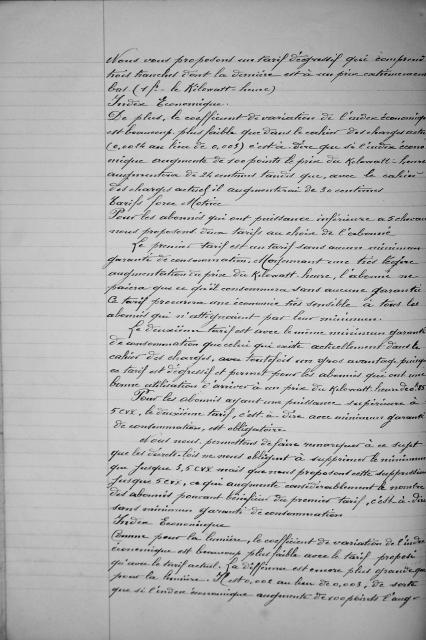 Nous vous proposons un tarif dégressif qui comprend
trois tranches dont la dernière est à un prix extrêmement
bas (1 fr. le Kilowatt-heure)
Index Economique.
De plus, le coefficient de variation de l'index économique
est beaucoup plus faible que dans le cahier des charges actuel
au lieu de 0,003) c'est à dire que si l'index écono
mique augmente de 100 points le prix du Kilowatt-heure
augmentera de centimes tandis que, avec le cahier
des charges actuel, il augmenterait de 30 centimes
Tarifs force Motrice
Pour les abonnés qui ont puissance inférieure à 5 chevaux
nous proposons deux tarifs au choix de l'abonné
Le premier tarif est un tarif sans aucun minimum
garanti de consommation. Moyennant une très légère
augmentation du prix du Kilowatt-heure, l'abonné ne
paiera que ce qu'il consommera sans aucune garantie
Ce tarif procurera une économie très sensible à tous les
abonnés qui n'atteignaient pas leur minimum
Le deuxième tarif est avec le même minimum garanti
de consommation que celui qui existe actuellement dans le
cahier des charges, avec toutefois un gros avantage puisque
ce tarif est dégressif et permet pour les abonnés qui ont une
bonne utilisation d'arriver à un prix du Kilowatt-heure de
Pour les abonnés ayant une puissance supérieure à
5 CVX, le deuxième tarif, c'est à dire avec minimum garanti
de consommation, est obligatoire
Nous nous permettons de faire remarquer à ce sujet
que les décrets-lois ne nous obligent à supprimer le minimum
que jusque 3,5 CVX mais que nous proposons cette suppression
jusque 5 CVX, ce qui augmente considérablement le nombre
des abonnés pouvant bénéficier du premier tarif, c'est-à-dire
sans minimum garanti de consommation
Index Economique
Comme pour la lumière, le coefficient de variation de l'index
économique est beaucoup plus faible avec le tarif proposé
qu'avec le tarif actuel. La différence est encore plus grande que
pour la lumière. Il est 0,002 au lieu de 0,003, de sorte
que si l'index économique augmente de 100 points l'aug-